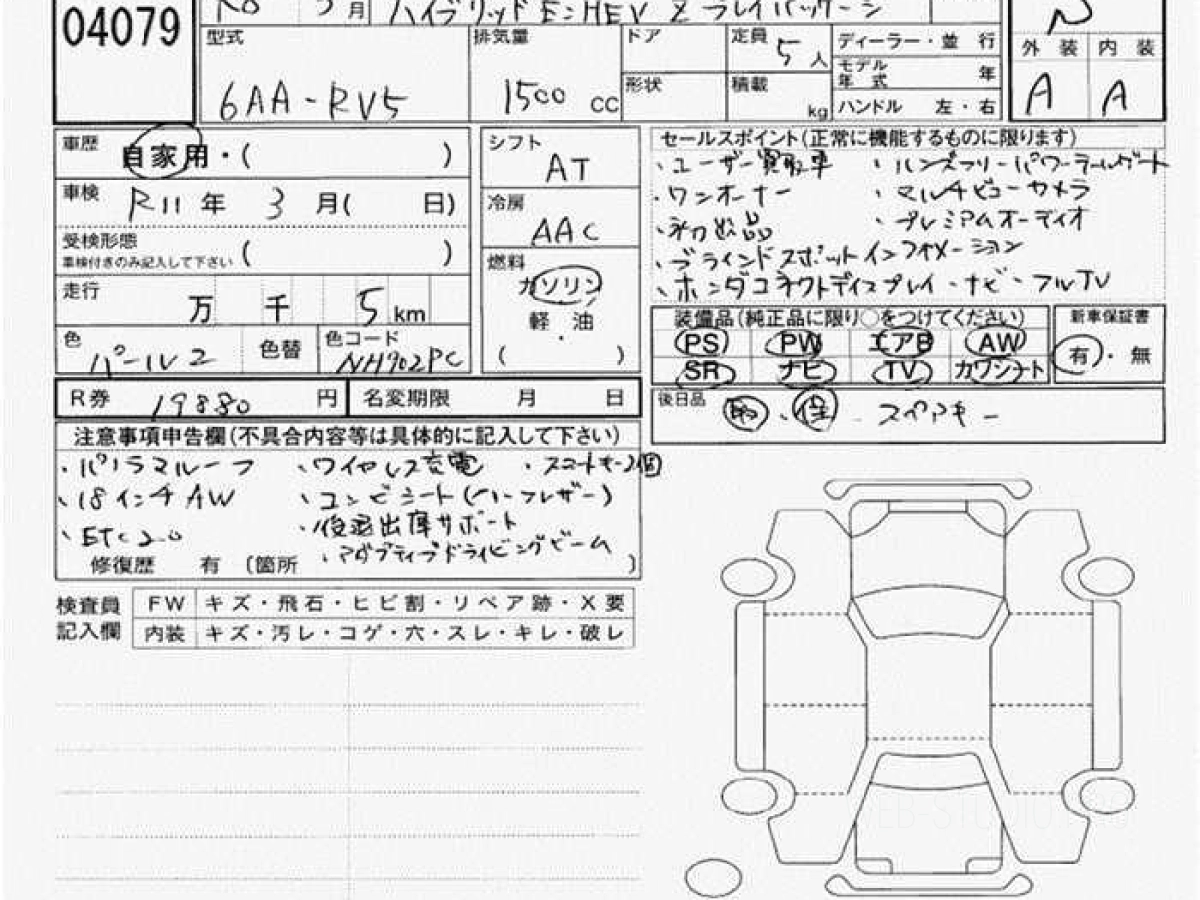 04079
R8 3月 ハイブリッド E:HEV Z プレイパッケージ
型式 6AA-RV5
排気量 1500 cc
ドア
形状
定員 5人
積載 kg
ディーラー・並行
モデル年式 年
ハンドル 左・右
外装 内装
A A
車歴 自家用・( )
車検 R11年 3月( 日)
受検形態 ( )
車検付きのみ記入して下さい
走行 万 千 5 km
色 パール2 色替 色コード NH902PC
シフト AT
冷房 AAC
燃料 ガソリン
軽・油
( )
セールスポイント(正常に機能するものに限ります)
・ユーザー買取車 ・ハンズフリーパワーテールゲート
・ワンオーナー ・マルチビューカメラ
・初出品 ・プレミアムオーディオ
・ブラインドスポットインフォメーション
・ホンダコネクトディスプレイ・ナビ・フルTV
装備品(純正品に限り○をつけてください)
PS PW エアB AW
SR ナビ TV カワシート
新車保証書
有・無
R券 19880円 名変期限 月 日
後日品 取・保 スペアキー
注意事項申告欄(不具合内容等は具体的に記入して下さい)
・パノラマルーフ ・ワイヤレス充電 ・スマートキー2個
・18インチAW ・コンビシート(ハーフレザー)
・ETC2.0 ・後退出庫サポート
・アダプティブドライビングビーム
修復歴 有 〔箇所 〕
検査員記入欄
FW キズ・飛石・ヒビ割・リペア跡・X要
内装 キズ・汚レ・コゲ・穴・スレ・キレ・破レ